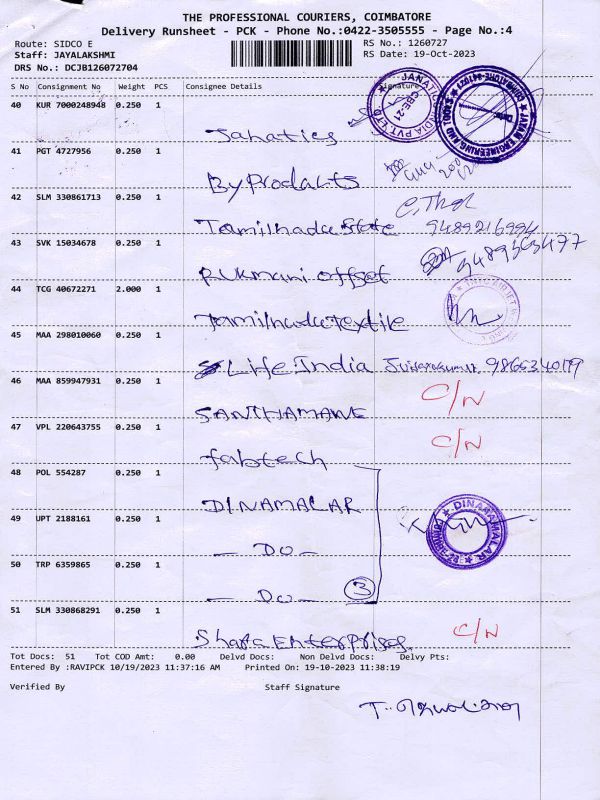 THE PROFESSIONAL COURIERS, COIMBATORE
Delivery Runsheet - PCK - Phone No.:0422-3505555 - Page No.:4
Route: SIDCO E
RS No.: 1260727
Staff: JAYALAKSHMI
RS Date: 19-Oct-2023
DRS No.: DCJB126072704
S No Consignment No Weight PCS Consignee Details Signature
40 KUR 7000248948 0.250 1
41 PGT 4727956 0.250 1
By Prodakts
42 SLM 330861713 0.250 1
Tamilnadu State 9489216994
43 SVK 15034678 0.250 1
Rukmani offset 9489363477
44 TCG 40672271 2.000 1
Tamilnadu Textile
45 MAA 298010060 0.250 1
Life India 9865340179
46 MAA 859947931 0.250 1
C/N
47 VPL 220643755 0.250 1
fabtech C/N
48 POL 554287 0.250 1
DINAMALAR
49 UPT 2188161 0.250 1
- Do -
DINAMALAR
50 TRP 6359865 0.250 1
- Do - 3
51 SLM 330868291 0.250 1
Enterprises C/N
Tot Docs: 51 Tot COD Amt: 0.00 Delvd Docs: Non Delvd Docs: Delvy Pts:
Entered By :RAVIPCK 10/19/2023 11:37:16 AM Printed On: 19-10-2023 11:38:19
Verified By Staff Signature